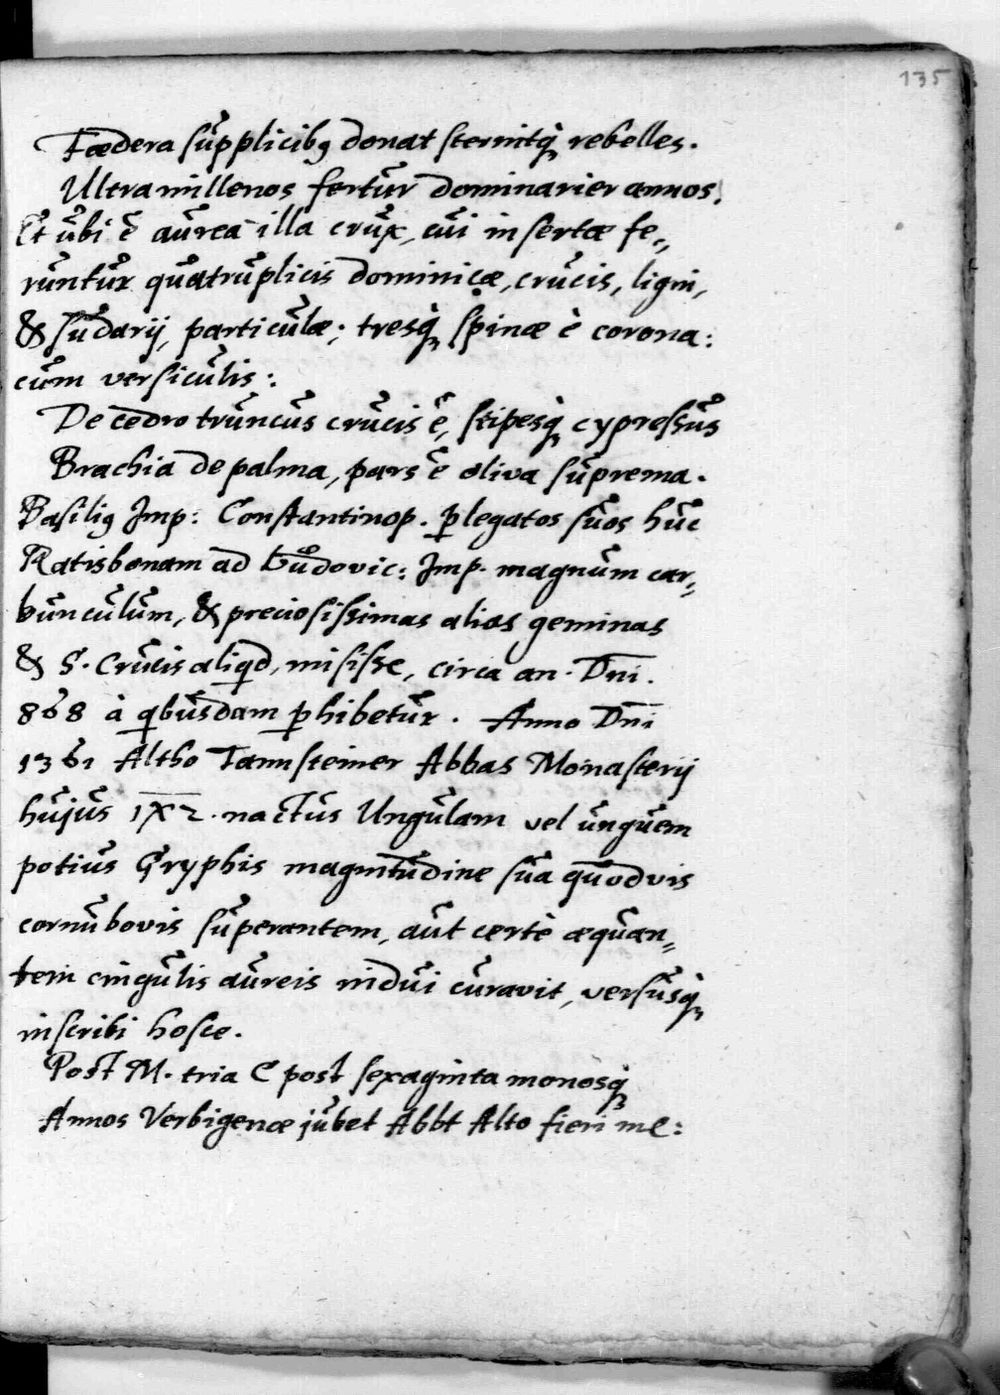 135
Fœdera supplicibꝰ donat sternitq̀ꝫ rebelles.
Ultra millenos fertur dominarier annos.
Et ubi ẽ aurea illa crux, cui insertæ fe„
runtur quatruplicis dominicæ, crucis, ligni,
& sudarij, particulæ; tresq̀ꝫ spinæ è corona:
cum versiculis:.
De cedro truncus crucis ẽ, stipesq̀ꝫ cypressus
Brachia de palma, pars ẽ oliva suprema.
Basiliꝰ Imp: Constantinop. ꝑ legatos suos huc
Ratisbonam ad Ludovic: Imp. magnum car„
bunculum, & preciosissimas alias geminas
& S. Crucis aliqd, misisse, circa an. Dni.
868 à qbusdam ꝑhibetur. Anno Dni
1361 Altho Tannsteiner Abbas Monasterij
hujus 1X2. nactus Ungulam vel unguem
potius Gryphis magnitudine sua quodvis
cornu bovis superantem, aut certè æquan„
tem cingulis aureis indui curavit, versusq̀ꝫ
inscribi hosce.
Post M. tria C post sexaginta monosq̀ꝫ
Annos Verbigenæ jubet Abbt Alto fieri me: